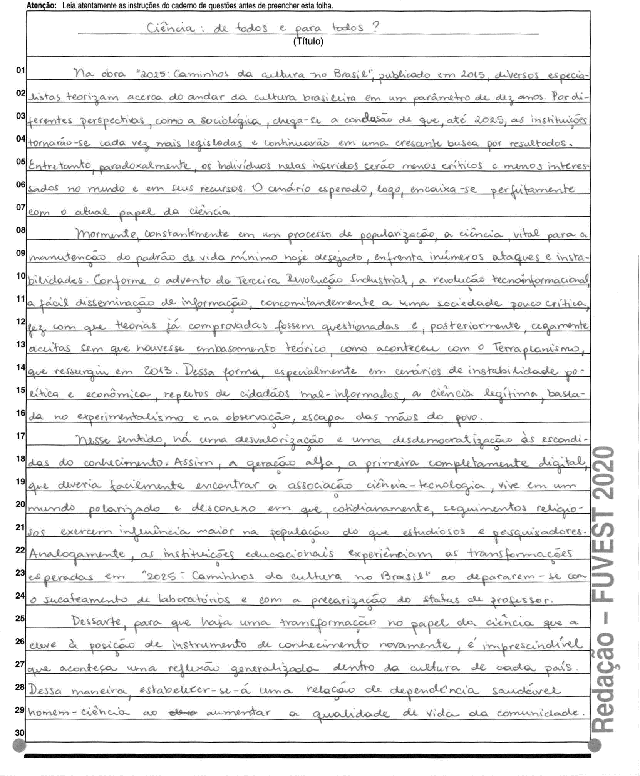 Atenção: Leia atentamente as instruções do caderno de questões antes de preencher esta folha.
Ciência: de todos e para todos?
(Título)
01 Na obra "2025: Caminhos da cultura no Brasil", publicado em 2015, diversos especia-
02 listas teorizam acerca do andar da cultura brasileira em um parâmetro de dez anos. Por di-
03 ferentes perspectivas, como a sociológica, chega-se a conclusão de que, até 2025, as instituições
04 tornarão-se cada vez mais legisladas e continuarão em uma crescente busca por resultados.
05 Entretanto, paradoxalmente, os indivíduos nelas inseridos serão menos críticos e menos interes-
06 sados no mundo e em seus recursos. O cenário esperado, logo, encaixa-se perfeitamente
07 com o atual papel da ciência
08 Mormente, constantemente em um processo de popularização, a ciência, vital para a
09 manutenção do padrão de vida mínimo hoje desejado, enfrenta inúmeros ataques e insta-
10 bilidades. Conforme o advento da Terceira Revolução Industrial, a revolução tecnoinformacional,
11 a fácil disseminação de informação, concomitantemente a uma sociedade pouco crítica,
12 fez com que teorias já comprovadas fossem questionadas e, posteriormente, cegamente
13 aceitas sem que houvesse embasamento teórico, como aconteceu com o Terraplanismo,
14 que ressurgiu em 2013. Dessa forma, especialmente em cenários de instabilidade po-
15 lítica e econômica, repletos de cidadãos mal-informados, a ciência legítima, basea-
16 da no experimentalismo e na observação, escapa das mãos do povo.
17 Nesse sentido, há uma desvalorização e uma desdemocratização às escondi-
18 das do conhecimento. Assim, a geração alfa, a primeira completamente digital,
19 que deveria facilmente encontrar a associação ciência-tecnologia, vive em um
20 mundo polarizado e desconexo em que, cotidianamente, seguimentos religio-
21 sos exercem influência maior na população do que estudiosos e pesquisadores.
22 Analogamente, as instituições educacionais experienciam as transformações
23 esperadas em "2025: Caminhos da cultura no Brasil" ao depararem-se com
24 o sucateamento de laboratórios e com a precarização do status de professor.
25 Dessarte, para que haja uma transformação no papel da ciência que a
26 eleve à posição de instrumento de conhecimento novamente, é imprescindível
27 que aconteça uma reflexão generalizada dentro da cultura de cada país.
28 Dessa maneira, estabelecer-se-á uma relação de dependência saudável
29 homem-ciência ao aumentar a qualidade de vida da comunidade.
30
Redação – FUVEST 2020